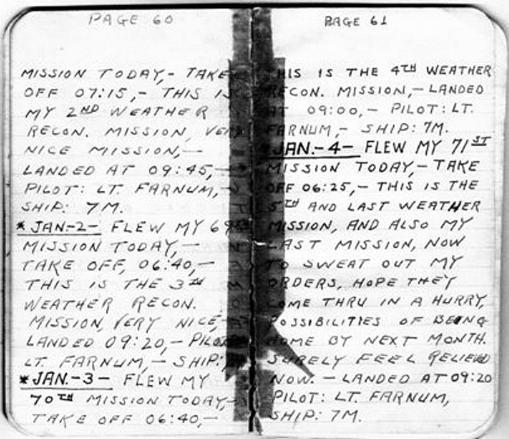 PAGE 60
MISSION TODAY,- TAKE
OFF 07:15,- THIS IS
MY 2ND WEATHER
RECON. MISSION, VERY
NICE MISSION,-
LANDED AT 09:45,-
PILOT: LT. FARNUM,-
SHIP: 7M.
* JAN-2- FLEW MY 69TH
MISSION TODAY,-
TAKE OFF, 06:40,-
THIS IS THE 3RD
WEATHER RECON.
MISSION, VERY NICE,-
LANDED 09:20,- PILOT
LT. FARNUM,- SHIP:
* JAN.-3- FLEW MY
70TH MISSION TODAY,-
TAKE OFF 06:40,-
PAGE 61
THIS IS THE 4TH WEATHER
RECON. MISSION,- LANDED
AT 09:00,- PILOT: LT.
FARNUM,- SHIP: 7M.
* JAN.-4- FLEW MY 71ST
MISSION TODAY,- TAKE
OFF 06:25,- THIS IS THE
5TH AND LAST WEATHER
MISSION, AND ALSO MY
LAST MISSION, NOW
TO SWEAT OUT MY
ORDERS, HOPE THEY
COME THRU IN A HURRY,
POSSIBILITIES OF BEING
HOME BY NEXT MONTH.
SURELY FEEL RELIEVED
NOW. - LANDED AT 09:20
PILOT: LT. FARNUM,
SHIP: 7M.